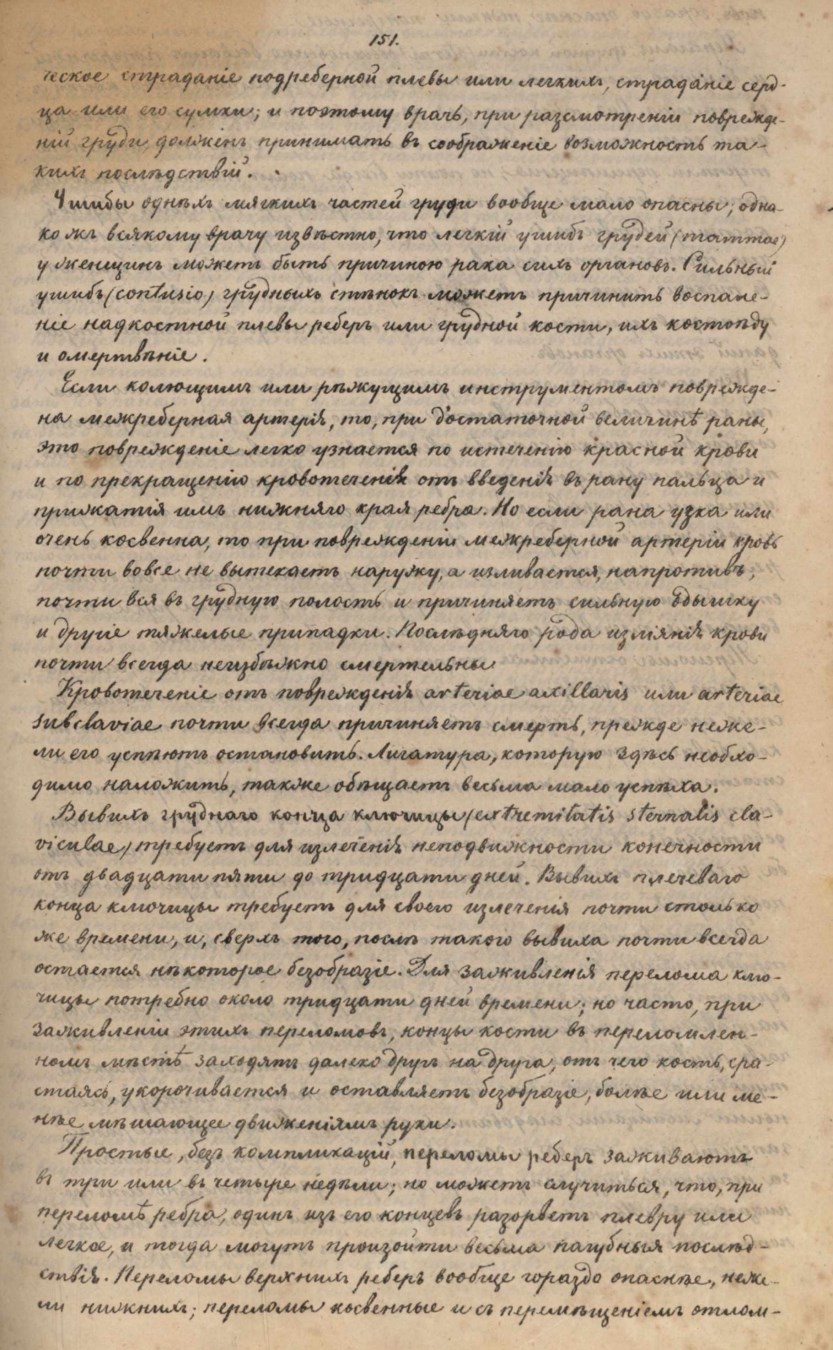 151.
ческое страданіе подреберной плевы или легкихъ, страданіе серд-
ца или его сумки; и поэтому врачъ, при разсмотреніи поврежде-
ній груди, долженъ принимать въ соображеніе возможность та-
кихъ послѣдствій.
Ушибы однѣхъ мягкихъ частей груди вообще мало опасны; одна-
ко жъ всякому врачу извѣстно, что легкій ушибъ грудей (mammae)
у женщинъ можетъ быть причиною рака сихъ органовъ. Сильный
ушибъ (contusio) грудныхъ стѣнокъ можетъ причинить воспале-
ніе надкостной плевы реберъ или грудной кости, ихъ костоѣду
и омертвѣніе.
Если колющимъ или рѣжущимъ инструментомъ поврежде-
на межреберная артерія, то, при достаточной величинѣ раны,
это поврежденіе легко узнается по истеченію красной крови
и по прекращенію кровотеченія отъ введенія въ рану пальца и
прижатія имъ нижняго края ребра. Но если рана узка или
очень косвенна, то при поврежденіи межреберной артеріи кровь
почти вовсе не вытекаетъ наружу, а изливается, напротивъ,
почти вся въ грудную полость и причиняетъ сильную одышку
и другіе тяжелые припадки. Послѣдняго рода изліянія крови
почти всегда неизбѣжно смертельны
Кровотеченіе отъ поврежденія arteriae axillaris или arteriae
subclaviae почти всегда причиняетъ смерть, прежде неже-
ли его успѣютъ остановить. Лигатура, которую здѣсь необхо-
димо наложить, также обѣщаетъ весьма мало успѣха.
Вывихъ груднаго конца ключицы (extremitatis sternalis cla-
viculae) требуетъ для излеченія неподвижности конечности
отъ двадцати пяти до тридцати дней. Вывихъ плечеваго
конца ключицы требуетъ для своего излеченія почти столько
же времени, и, сверхъ того, послѣ такого вывиха почти всегда
остается нѣкоторое безобразіе. Для заживленія перелома клю-
чицы потребно около тридцати дней времени; но часто, при
заживленіи этихъ переломовъ, концы кости въ переломлен-
номъ мѣстѣ заходятъ далеко другъ на друга, отъ чего кость, сра-
стаясь, укорочивается и оставляетъ безобразіе, болѣе или ме-
нѣе мѣшающее движеніямъ руки.
Простые, безъ компликацій, переломы реберъ заживаютъ
въ три или въ четыре недѣли; но можетъ случиться, что, при
переломѣ ребра, одинъ изъ его концевъ разорветъ плевру или
легкое, и тогда могутъ произойти весьма пагубныя послѣд-
ствія. Переломы верхнихъ реберъ вообще гораздо опаснѣе, неже-
ли нижнихъ; переломы косвенные и съ перемѣщеніемъ отлом-